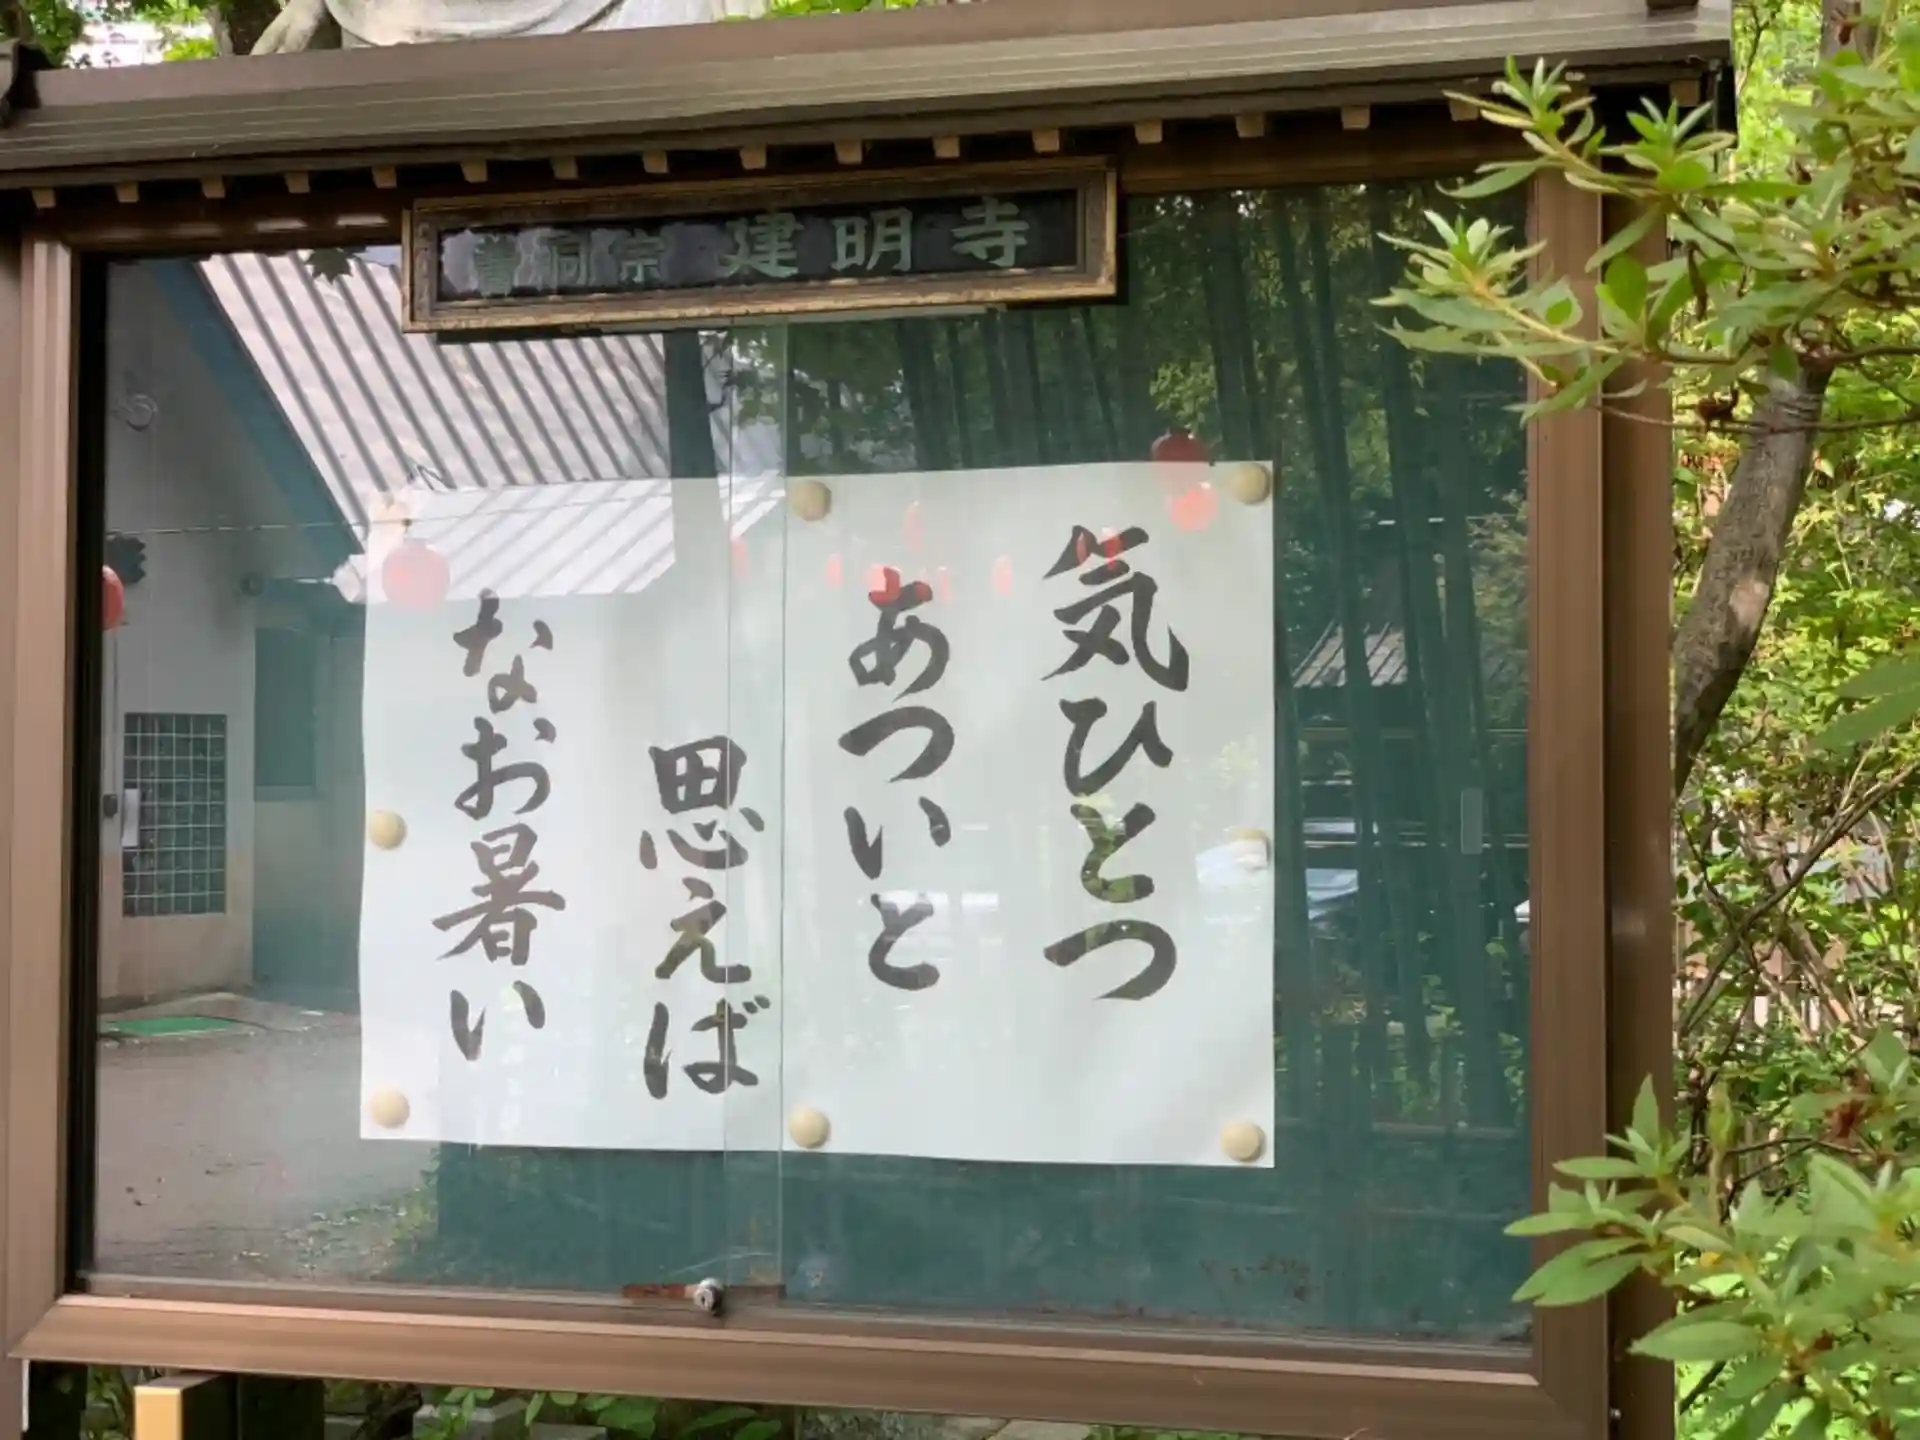 曹洞宗 建明寺
気ひとつ
あついと
思えば
なお暑い